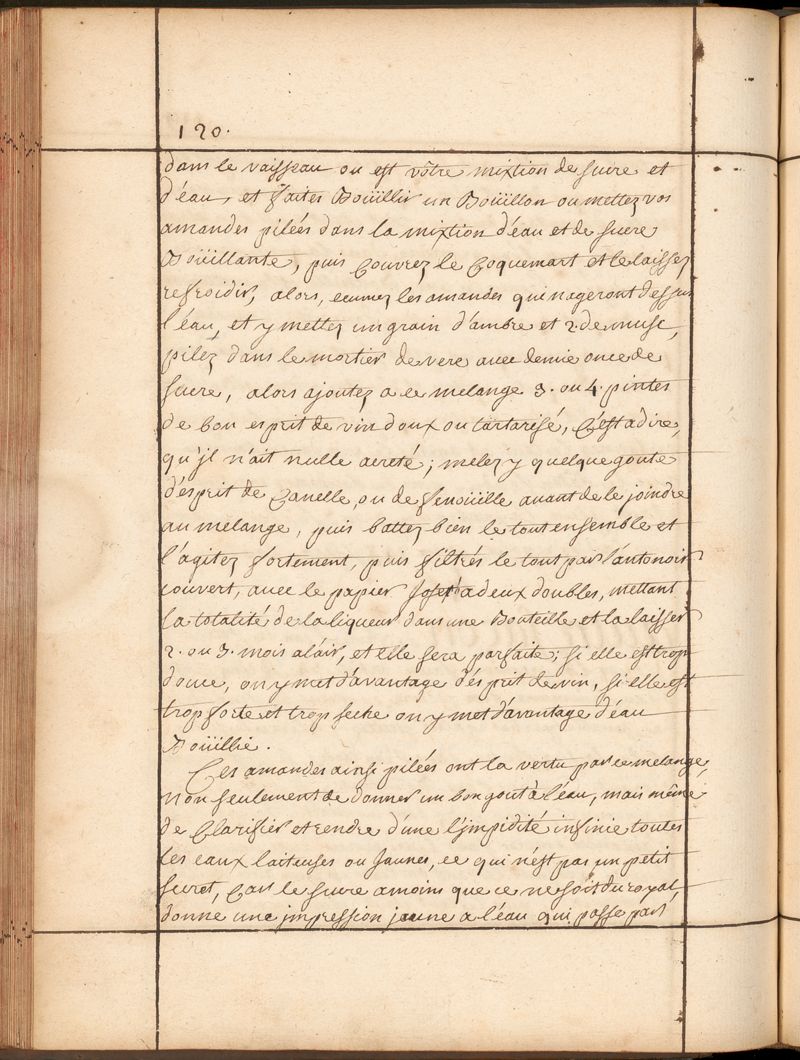 120.
dans le vaisseau ou est vôtre mixtion de sucre et
d'éau, et faites Boüillir un Boüillon ou mettez vos
amandes pilées dans la mixtion d'éau et de sucre
Boüillante, puis couvrez le Coquemart et le laissez
refroidir, alors, ecumez les amandes qui nageront dessus
l'éau, et y mettez un grain d'ambre et 2. de musc,
pilez dans le mortier de vere avec demie once de
sucre, alors ajoutez a ce melange 3. ou 4. pintes
de bon esprit de vin doux ou tartarisé, C'est a dire,
qu'jl n'ait nulle acreté; melez y quelque goute
d'ésprit de Canelle, ou de fenoüille avant de le joindre
au melange, puis battez bien le tout ensemble et
l'agitez fortement, puis filtrés le tout par l'antonoir
couvert, avec le papier Joseph a deux doubles, mettant
la totalité de la liqueur dans une Bouteille et la laisser
2. ou 3. mois a l'air, et elle sera parfaite; si elle est trop
douce, on y met d'avantage d'ésprit de vin, si elle est
trop forte et trop seche on y met d'avantage d'éau
Boüillie.
Ces amandes ainsi pilées ont la vertu par ce melange,
non seulement de donner un bon gout à l'éau, mais même
de Clarifier et rendre d'une l'jmpidité infinie toutes
les eaux laiteuses ou Jaunes, ce qui n'ést pas un petit
secret, Car le sucre a moins que ce ne soit du royal,
donne une jmpression jaune a l'éau qui passe par